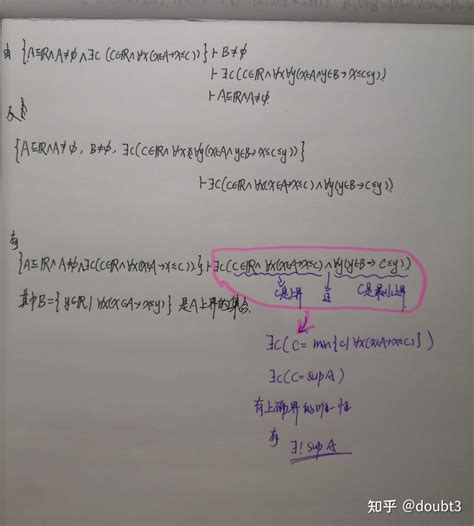 由 {A⊆ℝ∧A≠∅∧∃c(c∈ℝ∧∀x(x∈A→x≤c))}⊢B≠∅
⊢∃c(c∈ℝ∧∀x∀y(x∈A∧y∈B→x≤c≤y))
⊢A⊆ℝ∧A≠∅
及
{A⊆ℝ∧A≠∅, B≠∅, ∃c(c∈ℝ∧∀x∀y(x∈A∧y∈B→x≤c≤y))}
⊢∃c(c∈ℝ∧∀x(x∈A→x≤c)∧∀y(y∈B→c≤y))
有
{A⊆ℝ∧A≠∅∧∃c(c∈ℝ∧∀x(x∈A→x≤c))}⊢∃c(c∈ℝ∧∀x(x∈A→x≤c)∧∀y(y∈B→c≤y))
c是上界 且 c是最小上界
其中B={y∈ℝ|∀x(x∈A→x≤y)}是A上界的集合.
∃c(c=min{c|∀x(x∈A→x≤c)})
∃c(c=supA)
有上确界的唯一性
有 ∃!supA
知乎 @doubt3